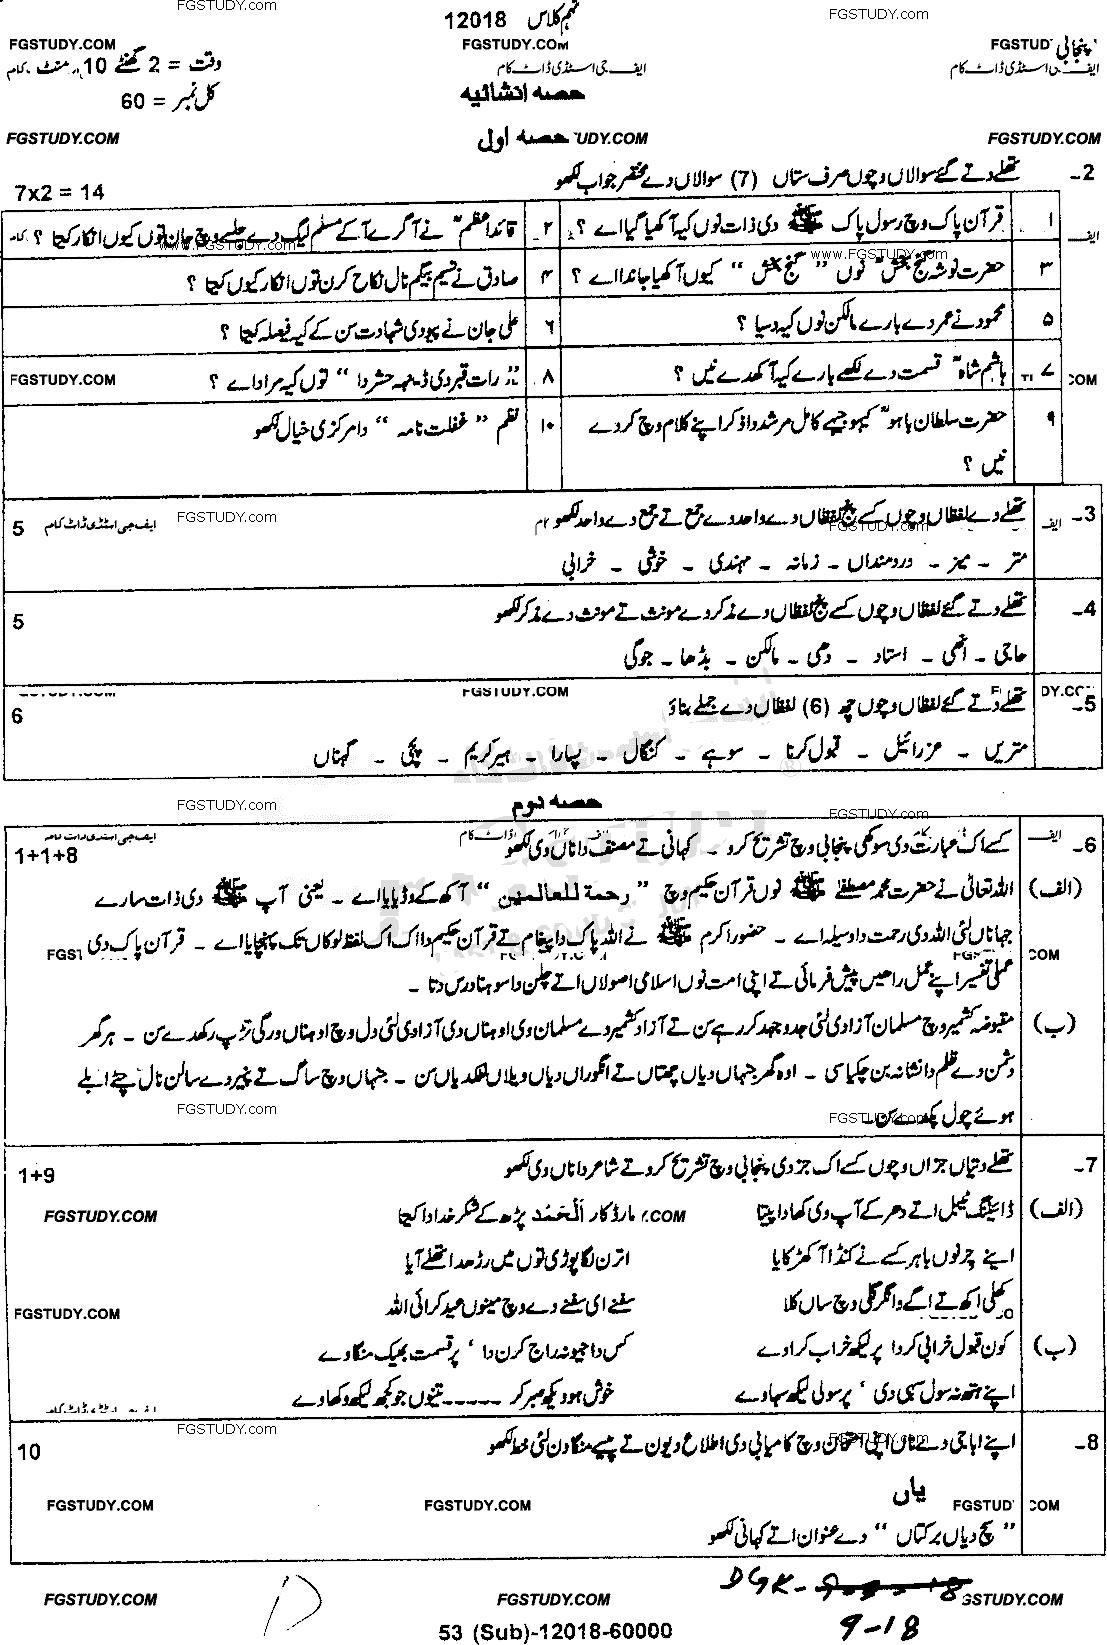 FGSTUDY.COM
نہم کلاس 12018
FGSTUDY.com
FGSTUDY.COM
FGSTUDY.COM
FGSTUD
پنجابی
وقت = 2 گھنٹے 10 منٹ
ایف جی اسٹڈی ڈاٹ کام
ایف جی اسٹڈی ڈاٹ کام
کل نمبر = 60
حصہ انشائیہ
FGSTUDY.COM
حصہ اول
UDY.COM
FGSTUDY.COM
2- تھلے دتے گئے سوالاں وچوں صرف ستاں (7) سوالاں دے مختصر جواب لکھو
7x2 = 14
۱ قرآن پاک وچ رسول پاک ﷺ دی ذات نوں کیہ آکھیا گیا اے ؟
۲ قائداعظمؒ نے آگرے آ کے مسلم لیگ دے جلسے وچ جان توں کیوں انکار کیتا ؟
www.FGSTUDY.com
www.FGSTUDY.com
۳ حضرت نوشہ گنج بخشؒ نوں " گنج بخش " کیوں آکھیا جاندا اے ؟
۴ صادق نے نسیم بیگم نال نکاح کرن توں انکار کیوں کیتا ؟
۵ محمود نے عمر دے بارے مالکن نوں کیہ دسیا ؟
۶ علی جان نے پیو دی شہادت سن کے کیہ فیصلہ کیتا ؟
۷ ہاشم شاہؒ قسمت دے لکھے بارے کیہ آکھدے نیں ؟
۸ رات قبر دی ڈیہہ حشر دا " توں کیہ مراد اے ؟
FGSTUDY.COM
COM
۹ حضرت سلطان باہوؒ کیہو جیہے کامل مرشد دا ذکر اپنے کلام وچ کردے
نیں ؟
۱۰ نظم " غفلت نامہ " دا مرکزی خیال لکھو
3- تھلے دے لفظاں وچوں کسے پنج لفظاں دے واحد دے جمع تے جمع دے واحد لکھو
FGSTUDY.com
FGSTUDY.com
ایف جی اسٹڈی ڈاٹ کام
5
متر - میز - دردمنداں - زمانہ - مہندی - خوشی - خرابی
4- تھلے دتے گئے لفظاں وچوں کسے پنج لفظاں دے مذکر دے مونث تے مونث دے مذکر لکھو
5
حاجی - انھی - استاد - دھی - مالکن - بڈھا - جوگی
FGSTUDY.COM
5- تھلے دتے گئے لفظاں وچوں چھ (6) لفظاں دے جملے بناؤ
6
متریں - عزرائیل - قبول کرنا - سوہے - کنگال - پسارا - ہیر کریم - پچی - گہناں
FGSTUDY.com
حصہ دوم
FGSTUDY.com
6- کسے اک عبارت دی سوکھی پنجابی وچ تشریح کرو - کہانی تے مصنف دا ناں وی لکھو
1+1+8
(الف) اللہ تعالیٰ نے حضرت محمد مصطفےٰ ﷺ نوں قرآن حکیم وچ " رحمة للعالمین " آکھ کے وڈیایا اے - یعنی آپ ﷺ دی ذات سارے
جہاناں لئی اللہ دی رحمت دا وسیلہ اے - حضور اکرم ﷺ نے اللہ پاک دا پیغام تے قرآن حکیم دا اک اک لفظ لوکاں تک پہنچایا اے - قرآن پاک دی
عملی تفسیر اپنے عمل راہیں پیش فرمائی تے اپنی امت نوں اسلامی اصولاں اتے چلن دا سوہنا درس دتا -
(ب) مقبوضہ کشمیر وچ مسلمان آزادی لئی جدوجہد کر رہے سن تے آزاد کشمیر دے مسلمان وی اوہناں دی آزادی لئی دل وچ اوہناں ورگی تڑپ رکھدے سن - ہر گھر
دشمن دے ظلم دا نشانہ بن چکیا سی - اوہ گھر جہاں دیاں چھتاں تے انگوراں دیاں ویلاں لٹکدیاں سن - جہاں وچ ساگ تے پنیر دے سالن نال چٹے ابلے
FGSTUDY.com
FGSTUDY.com
ہوئے چول پکدے سن
7- تھلے دتیاں جزاں وچوں کسے اک جز دی پنجابی وچ تشریح کرو تے شاعر دا ناں وی لکھو
1+9
(الف) ڈائینگ ٹیبل اتے دھر کے آپ وی کھادا پیتا
مار ڈکار اَلْحَمْد پڑھ کے شکر خدا دا کیتا
FGSTUDY.COM
اپنے چرنوں باہر کسے نے کنڈا آ کھڑکایا
اترن لگا پوڑی توں میں رڑھدا تھلے آیا
کھلی اکھ تے اگے وانگر گلی وچ ساں کلا
سفنے ای سفنے دے وچ مینوں عید کرائی اللہ
FGSTUDY.COM
(ب) کون قبول خرابی کردا پر لیکھ خراب کراوے
کس دا جیو نہ راج کرن دا ' پر قسمت بھیک منگاوے
اپنے ہتھ نہ سول سہی دی ' پر سولی لیکھ سہاوے
خوش ہو ویکھ صبر کر ----- تینوں جو کجھ لیکھ وکھاوے
FGSTUDY.com
FGSTUDY.com
8- اپنے اباجی دے ناں اپنی امتحان وچ کامیابی دی اطلاع دیون تے پیسے منگاون لئی خط لکھو
10
یاں
FGSTUDY.COM
FGSTUDY.COM
FGSTUD
COM
" سچ دیاں برکتاں " دے عنوان اتے کہانی لکھو
FGSTUDY.COM
D
FGSTUDY.COM
DGK-
GSTUDY.COM
9-18
53 (Sub)-12018-60000